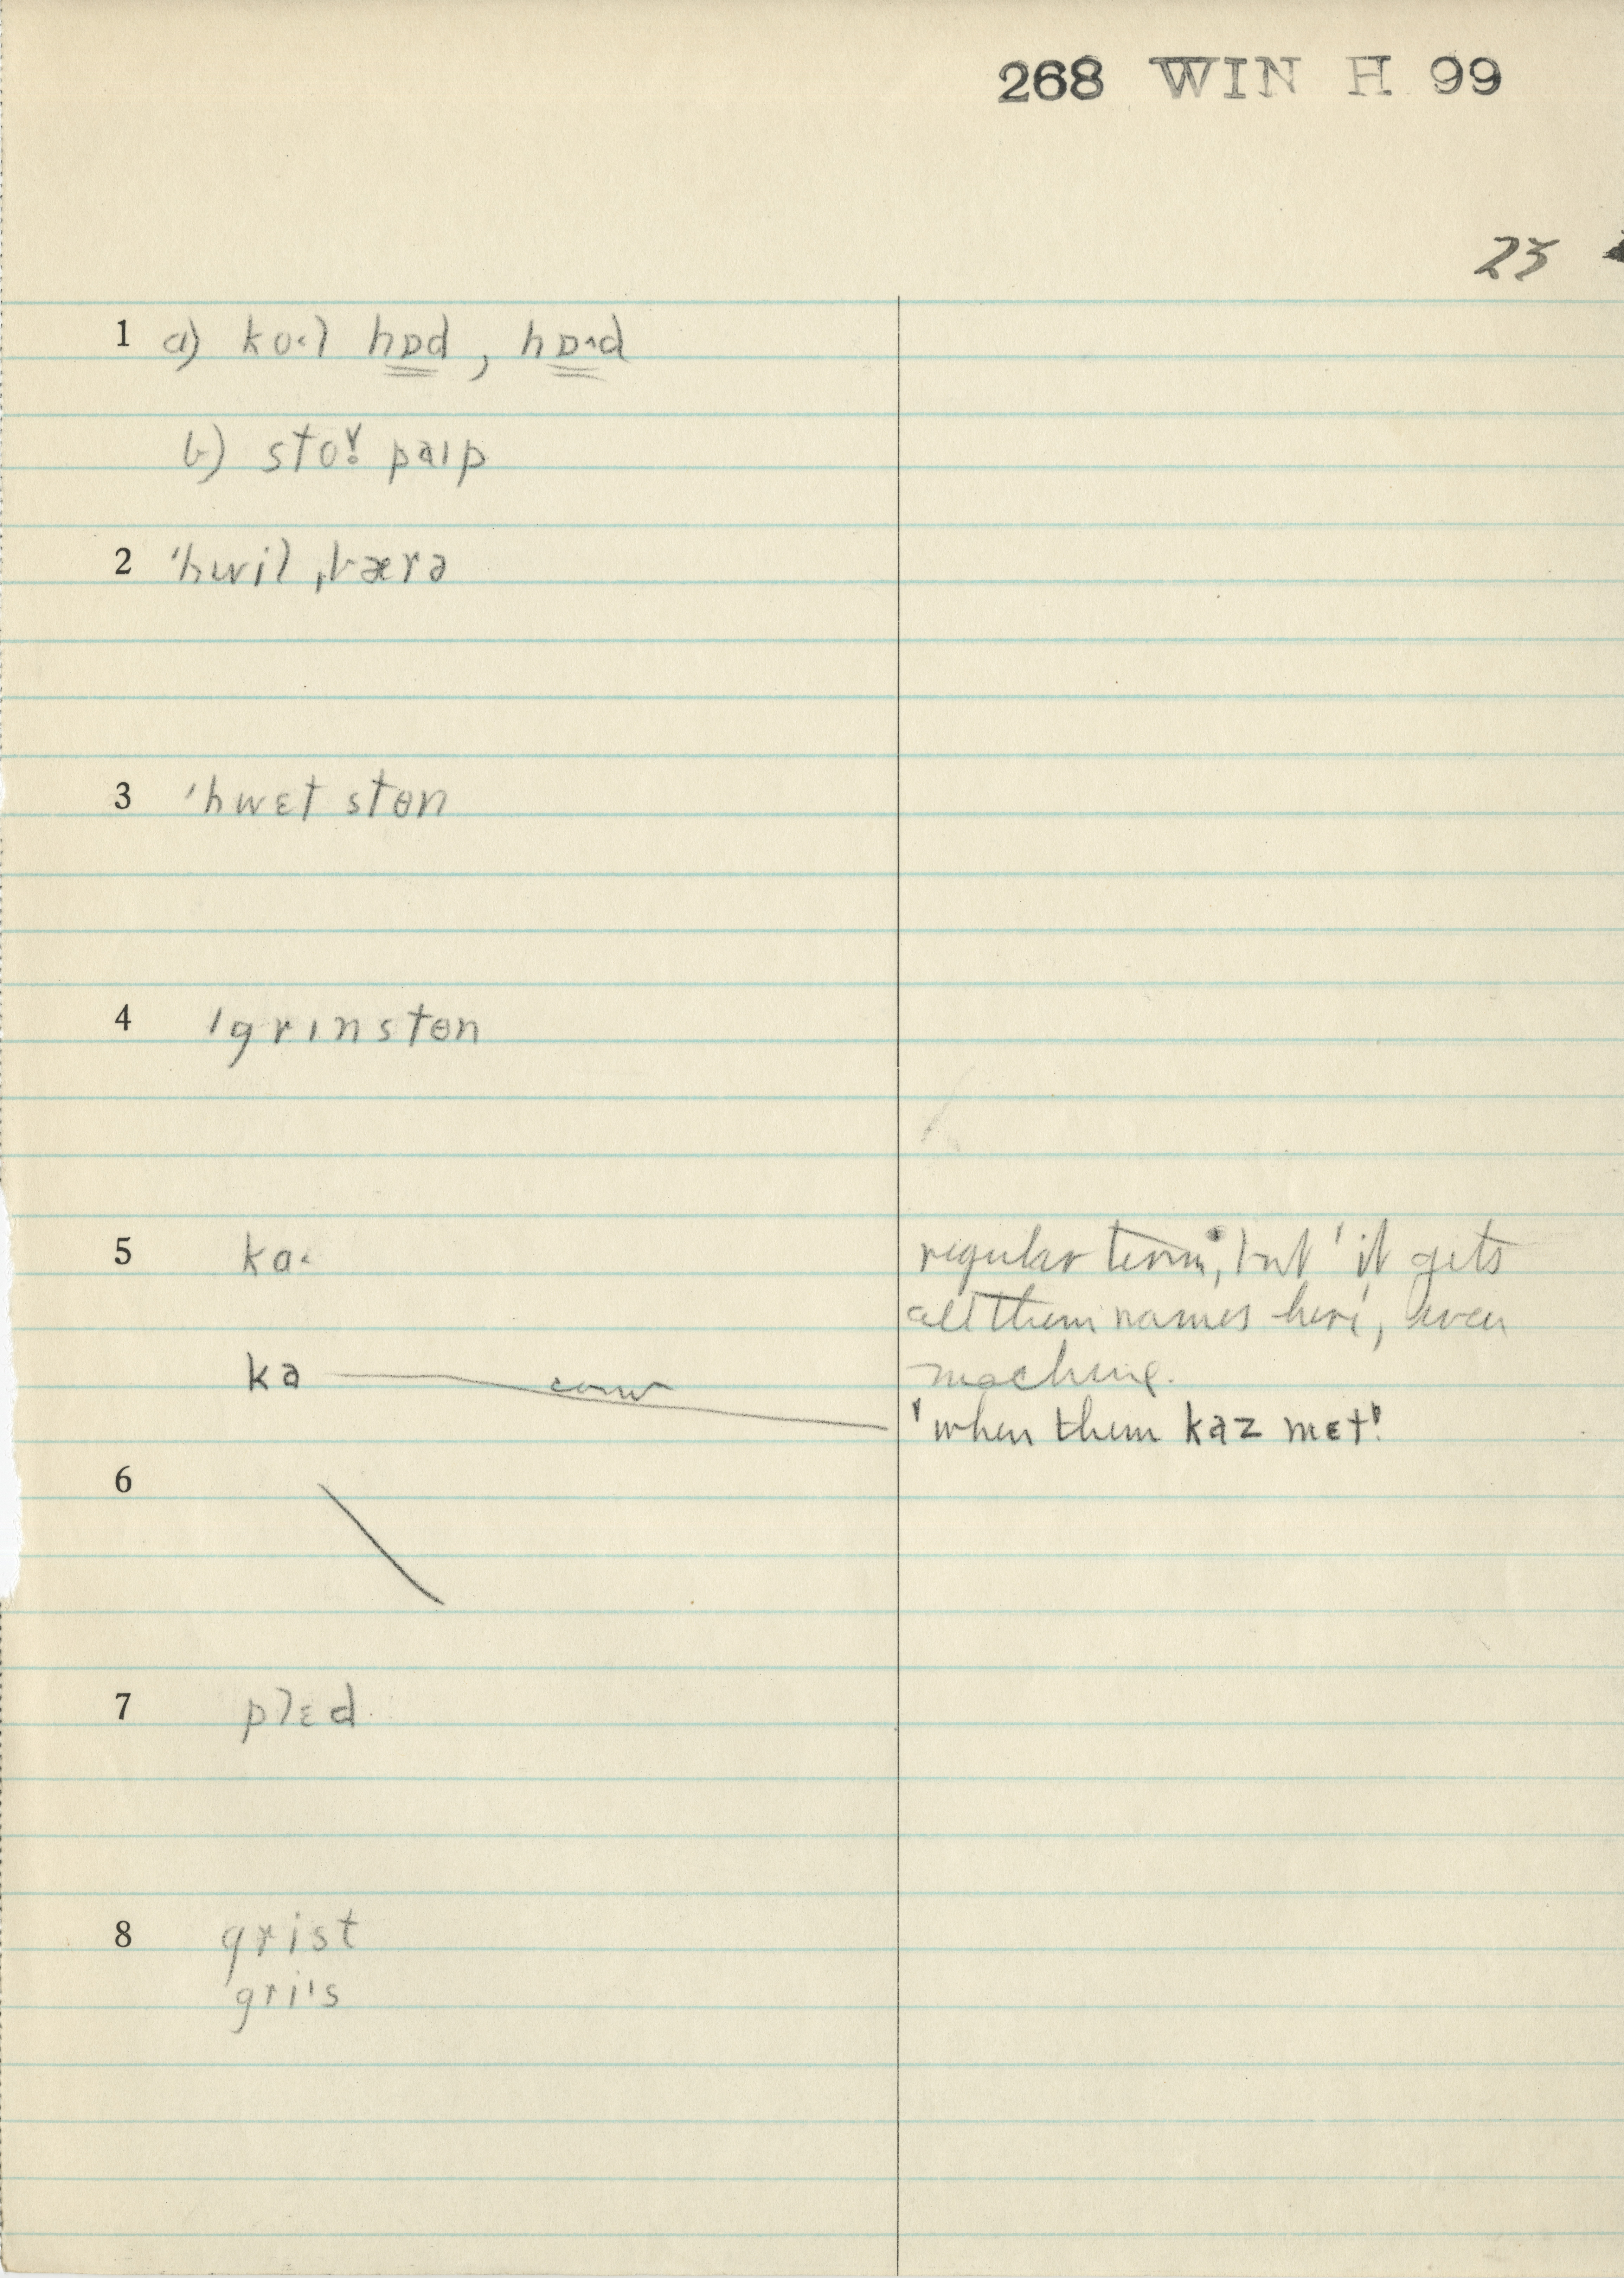 268 WIN H 99
23
1 a) ko˞l hɒd, hɒ˞d
b) sto paɪp
2 ˈhwil ˌbærə
3 ˈhwɛt stɵn
4 ˈgrɪnstɵn
5 ka˞ regular term, but 'it gets
all them names here', even
machine.
ka conv 'when them kaz mɛt'
6
7 plɛd
8 grist
gri's